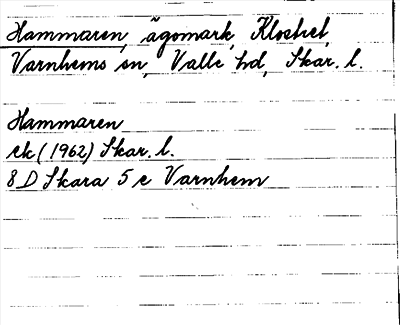 Hammaren, ägomark, Klostret,
Varnhems sn, Valle hd, Skar. l.
Hammaren
ek (1962) Skar. l.
8 D Skara 5 e Varnhem